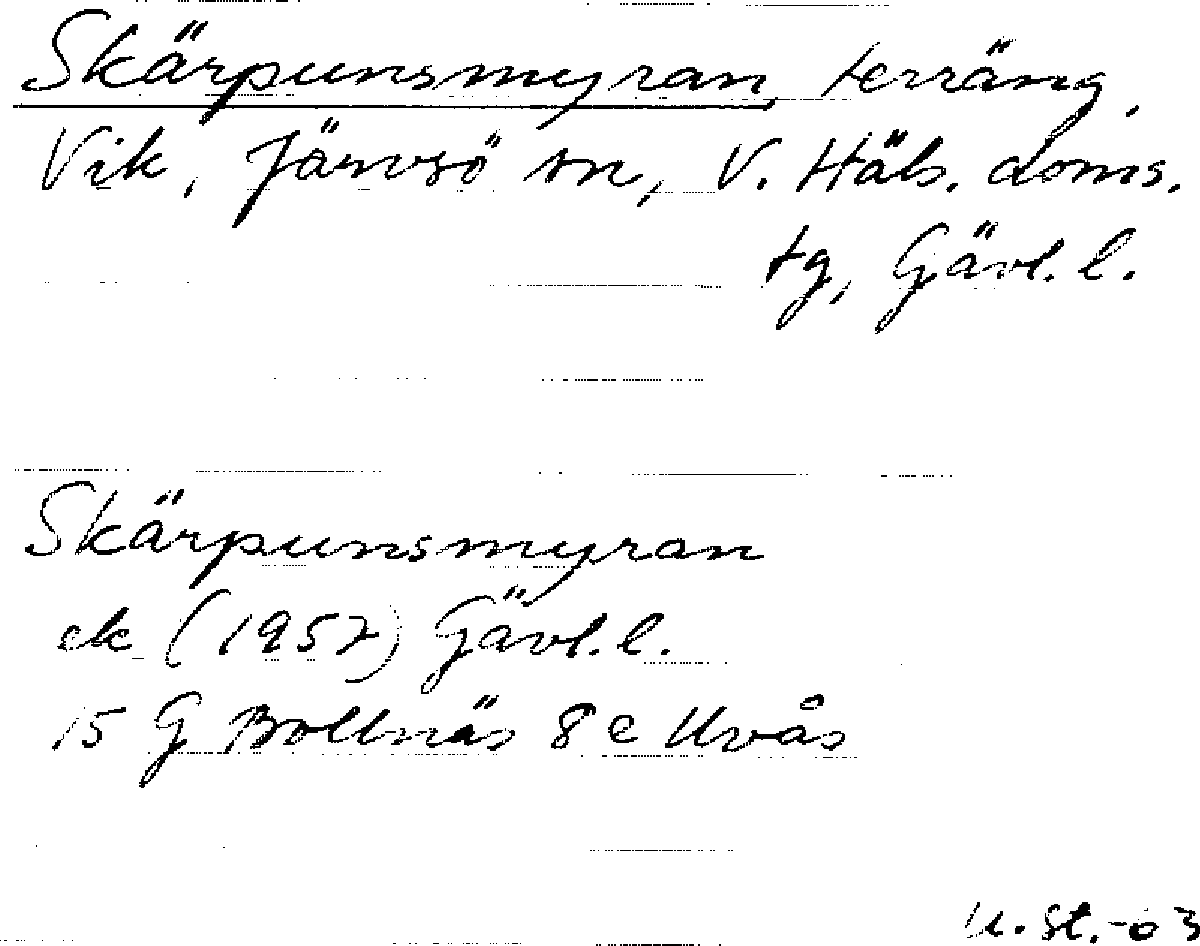 Skärpunsmyran, terräng,
Vik, Järvsö sn, V. Häls. doms.
tg, Gävl. l.
Skärpunsmyran
ek (1957) Gävl. l.
15 G Bollnäs 8 e Uvås
U. St. -03